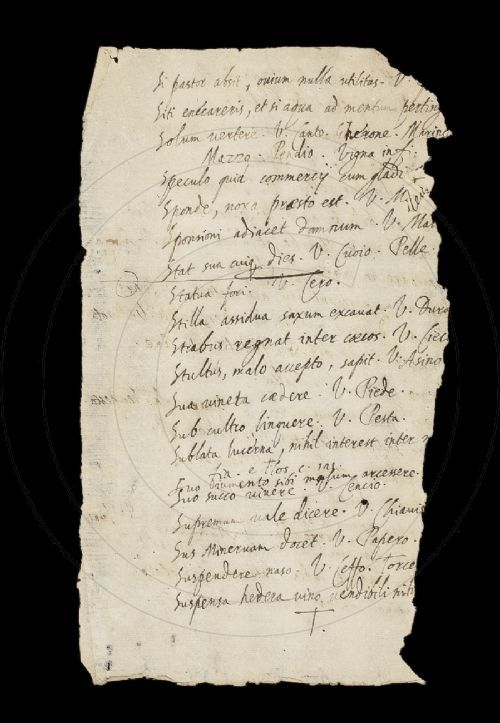 Si pastor absit, ovium nulla utilitas. V.
Siti enecareris, et si aqua ad mentum perting
Solum vertere. V. Canto. Marinc
Mazzo. Pendio. Vigna inf.
Speculo quid commercij cum gladi
Sponde, noxa præsto est. V. M
Sponsioni adjacet damnum. V. Mal
Stat sua cuiq dies. V. Cuoio. Pelle
Statua fori. V. Cero.
Stilla assidua saxum excavat. V. Duro
Strabus regnat inter cœcos. V. Ciecc
Stultus, malo accepto, sapit. V. Asino
Sua vineta cædere. V. Piede
Sub cultro linquere. V. Pesta.
Sublata lucerna, nihil interest inter
e Flos. c. 181.
Suo sibi malum arcessere
Suo succo vivere. V. Cencio.
Supremum vale dicere. V. Chiavi
Sus Minervam docet. V. Papero.
Suspendere naso. V. Ceffo. Torce
Suspensa hedera vino vendibili nih
T.